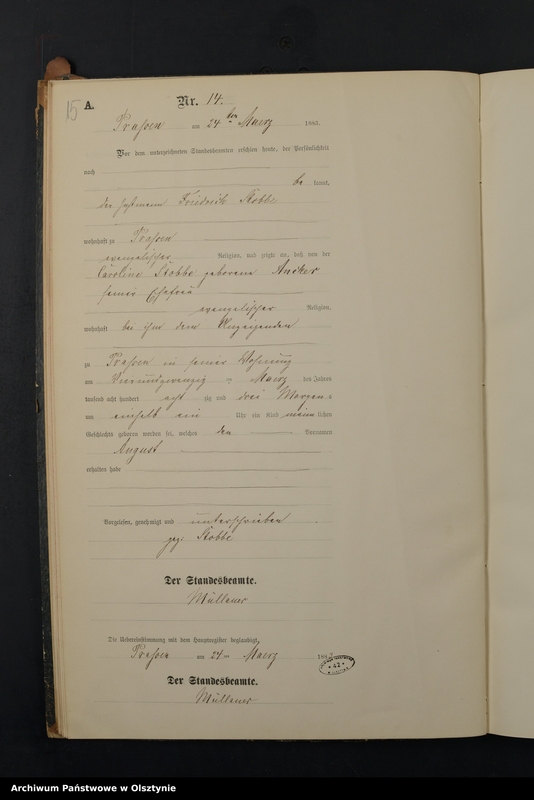 15 A. Nr. 14.
Prassen am 24 ten Maerz 1883.
Vor dem unterzeichneten Standesbeamten erschien heute, der Persönlichkeit
nach
be kannt,
Friedrich Stobbe
wohnhaft zu Prassen
evangelischer Religion, und zeigte an, daß von der
Caroline Stobbe geborene
seiner Ehefrau
evangelischer Religion,
wohnhaft bei ihm dem Anzeigenden
zu Prassen in seiner Wohnung
am Vierundzwanzig Maerz des Jahres
tausend acht hundert acht zig und drei Morgens
um einhalb ein Uhr ein Kind männlichen
Geschlechts geboren worden sei, welches den Vornamen
August
erhalten habe
Vorgelesen, genehmigt und unterschrieben
gez. Stobbe
Der Standesbeamte.
Die Uebereinstimmung mit dem Hauptregister beglaubigt,
Prassen am 24 ten Maerz 188
42
Der Standesbeamte.
Archiwum Państwowe w Olsztynie